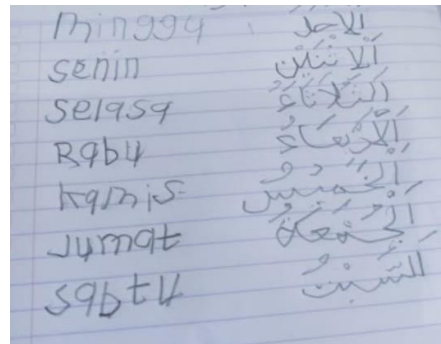 minggu اَلْأَحَدُ
senin اَلْاِثْنَيْنِ
selasa اَلثَّلَاثَاءُ
Rabu اَلْأَرْبِعَاءُ
Kamis اَلْخَمِيْسُ
Jumat اَلْجُمُعَةُ
sabtu اَلسَّبْتُ